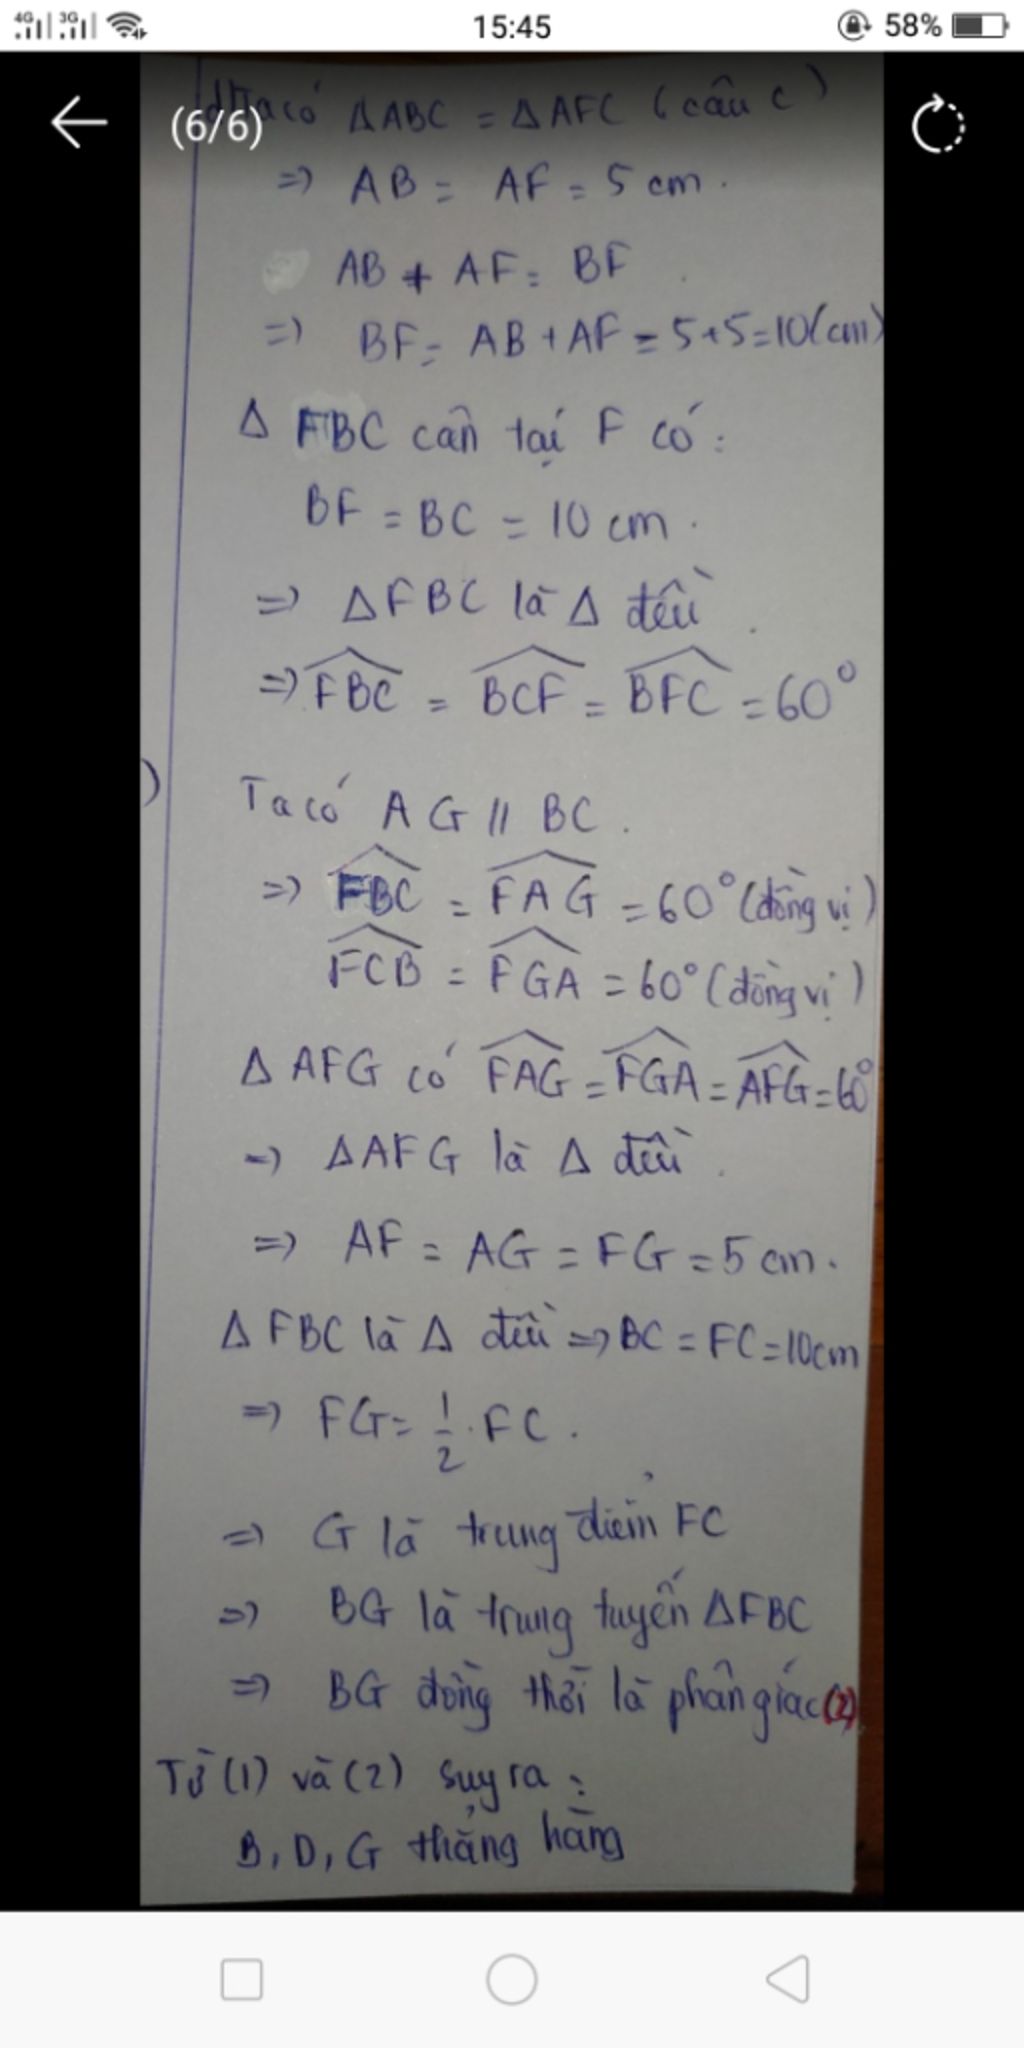 4G 3G 15:45 58%
(6/6)
d) Ta có ΔABC = ΔAFC (câu c)
=> AB = AF = 5 cm.
AB + AF = BF
=> BF = AB + AF = 5+5=10(cm)
Δ FBC cân tại F có:
BF = BC = 10 cm.
=> ΔFBC là Δ đều.
=> \widehat{FBC} = \widehat{BCF} = \widehat{BFC} = 60°
) Ta có AG // BC.
=> \widehat{FBC} = \widehat{FAG} = 60° (đồng vị)
\widehat{FCB} = \widehat{FGA} = 60° (đồng vị)
Δ AFG có \widehat{FAG} = \widehat{FGA} = \widehat{AFG} = 60°
=> ΔAFG là Δ đều.
=> AF = AG = FG = 5 cm.
Δ FBC là Δ đều => BC = FC = 10cm
=> FG = 1/2 . FC.
=> G là trung điểm FC
=> BG là trung tuyến ΔFBC
=> BG đồng thời là phân giác (2)
Từ (1) và (2) suy ra:
B, D, G thẳng hàng